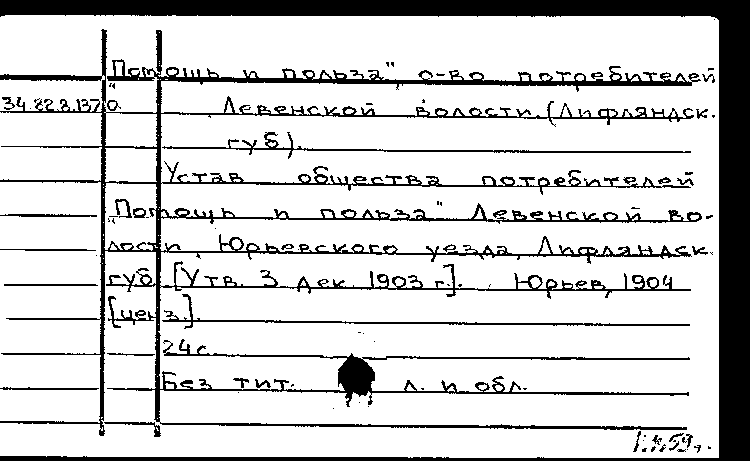 „Помощь и польза", о-во потребителей
34.82.8.137а Левенской волости. (Лифляндск.
губ).
Устав общества потребителей
„Помощь и польза" Левенской во-
лости, Юрьевского уезда, Лифляндск.
губ. [Утв. 3 дек. 1903 г.]. Юрьев, 1904
[ценз.].
24 с.
Без тит. л. и обл.